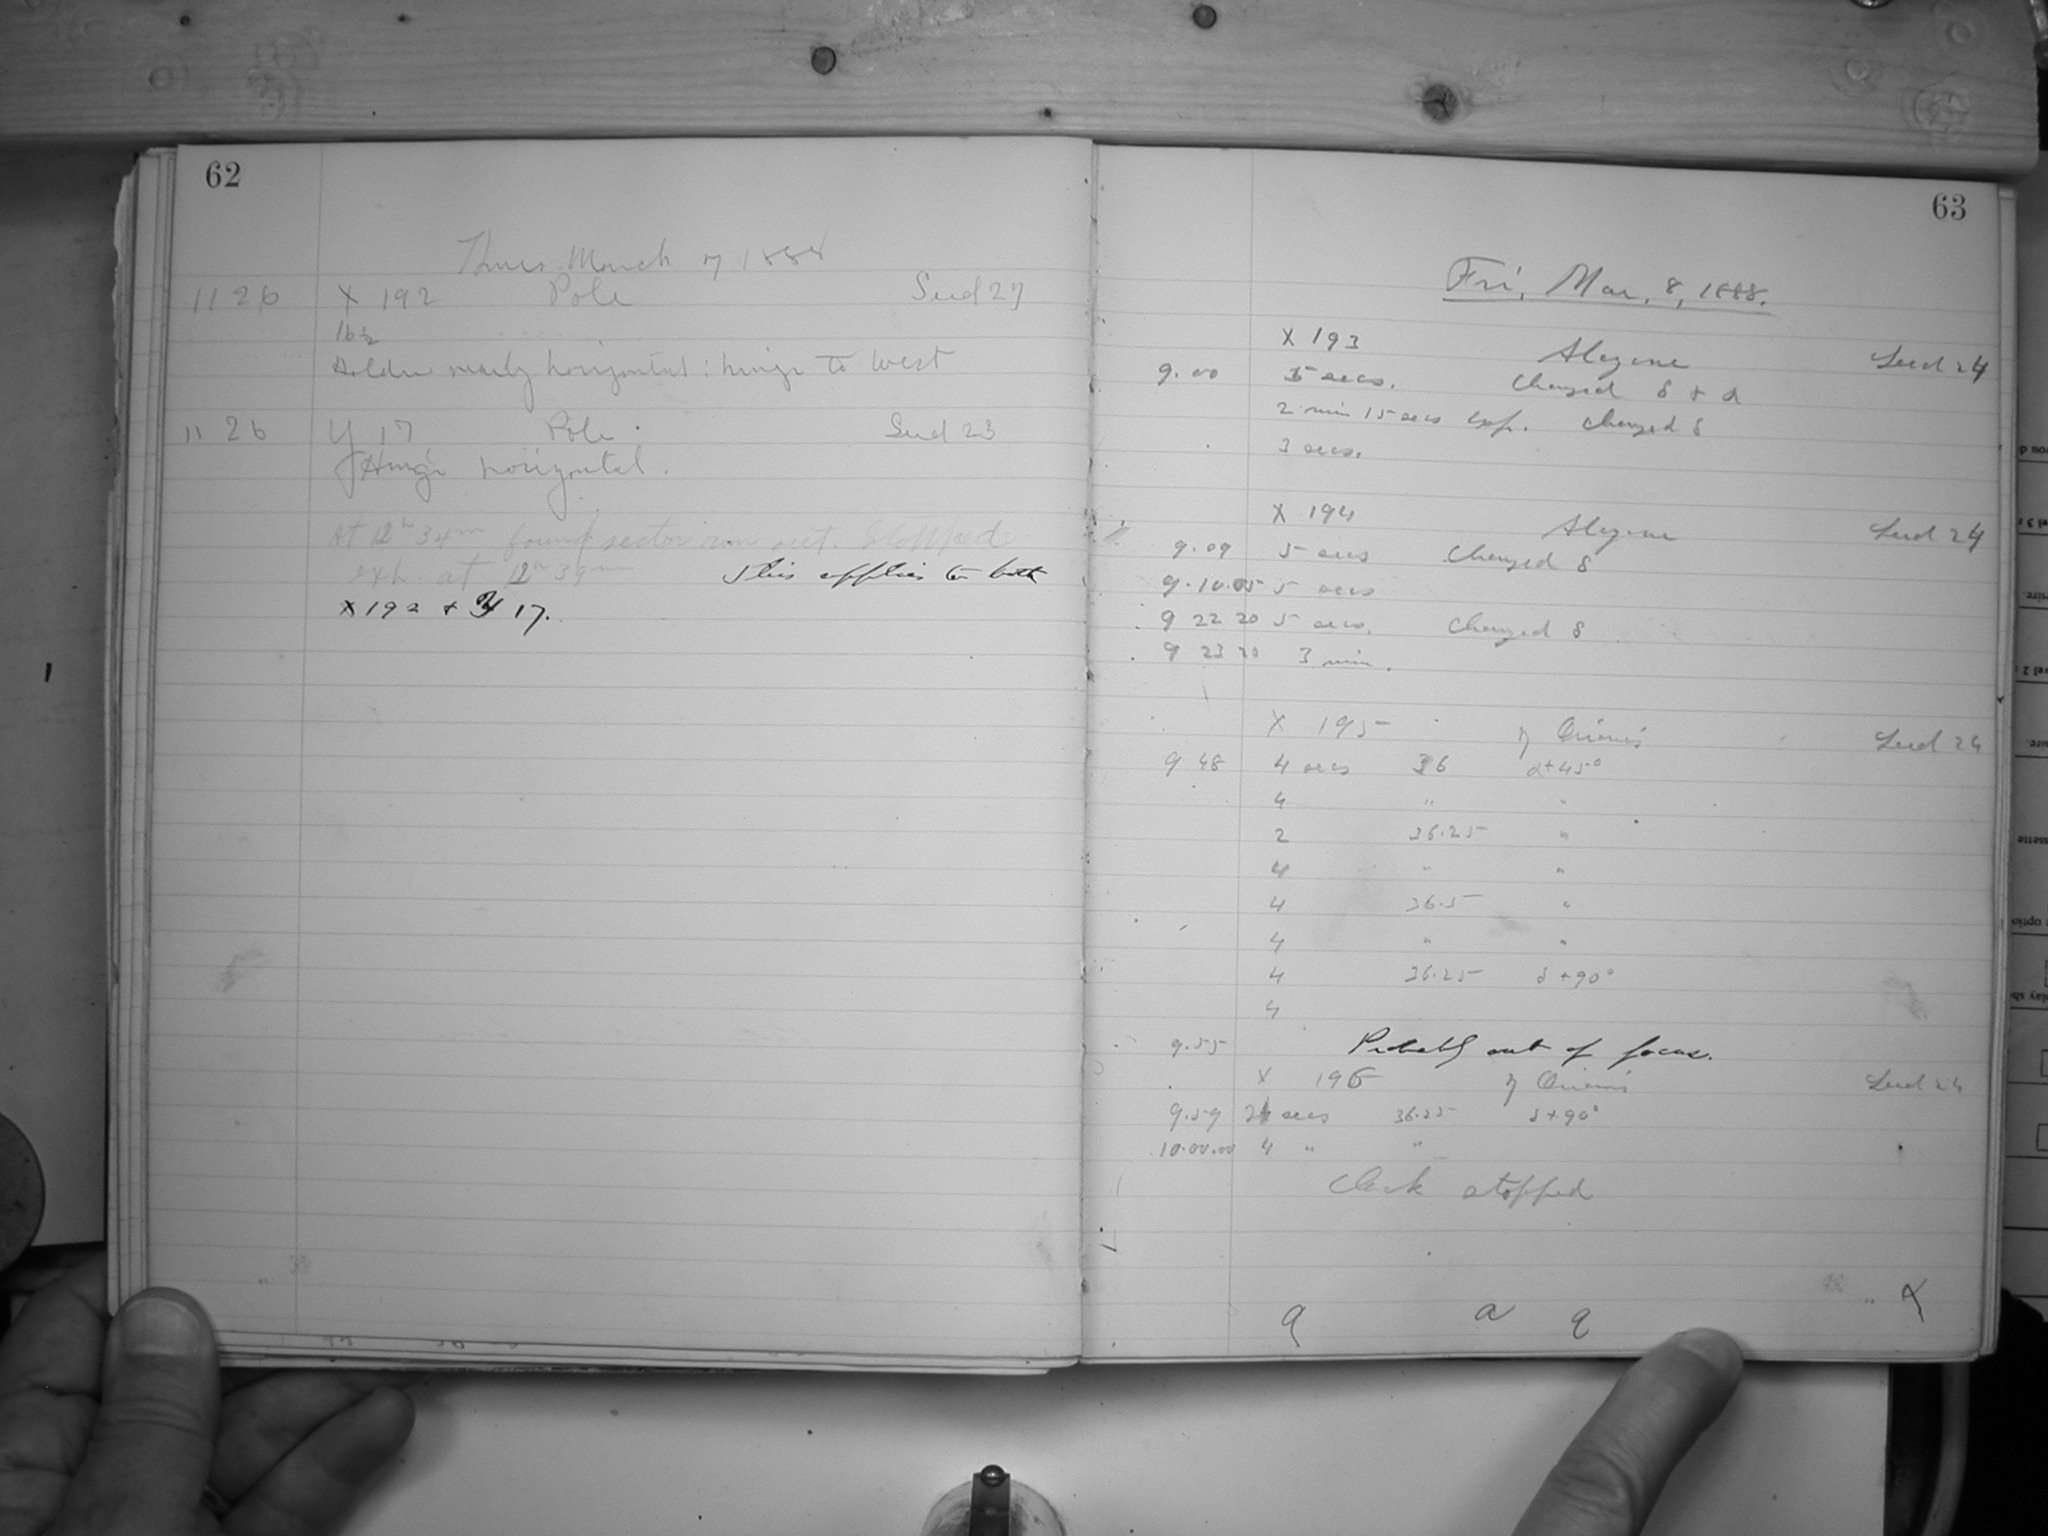 62
Thurs March 7 1888
11 26 X 192 Pole Seed 27
16½
Holder nearly horizontal; hinge to West
11 26 Y 17 Pole Seed 23
Hinge horizontal.
At 12h 34m found sector run out. Stopped
exp. at 12h 39m This applies to both
X 192 + Y 17.
63
Fri, Mar, 8, 1888.
X 193 Alcyone Seed 24
9.00 5 secs. Changed δ + α
2 min 15 secs exp. Changed δ
3 secs.
X 194 Alcyone Seed 24
9.09 5 secs Changed δ
9.10.05 5 secs
9 22 20 5 secs. Changed δ
9 23 20 3 min.
X 195 η Orionis Seed 24
9 48 4 secs 36 α+45°
4 " "
2 36.25 "
4 " "
4 36.5 "
4 " "
4 36.25 δ+90°
4
9.55 Probably out of focus.
X 196 η Orionis Seed 24
9.59 4 secs 36.25 δ+90°
10.00.00 4 " "
Clock stopped
a a